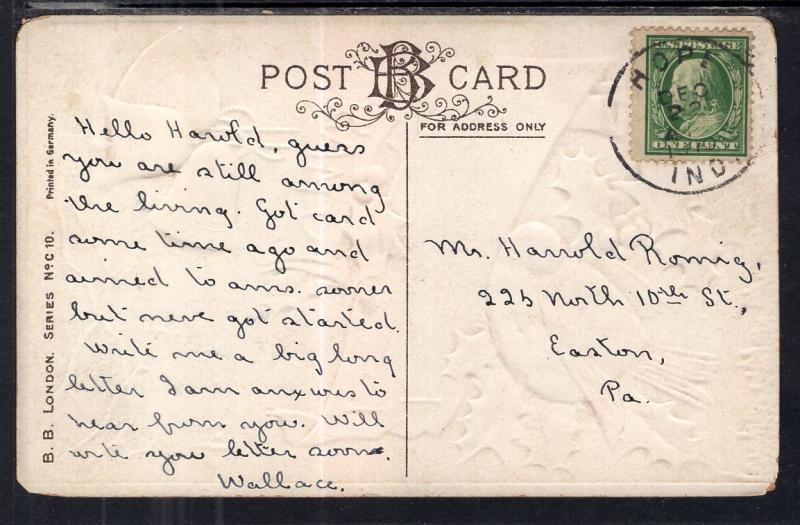 POST BB CARD
FOR ADDRESS ONLY
U.S. POSTAGE
ONE CENT
HOPE
DEC
22
IND
Hello Harold, guess
you are still among
the living. Got card
some time ago and
aimed to ans. sooner
but never got started.
Write me a big long
letter I am anxious to
hear from you. Will
write you letter soon.
Wallace.
Mr. Harrold Romig,
225 North 10th St.,
Easton,
Pa.
B. B. LONDON. SERIES No. C 10. Printed in Germany.